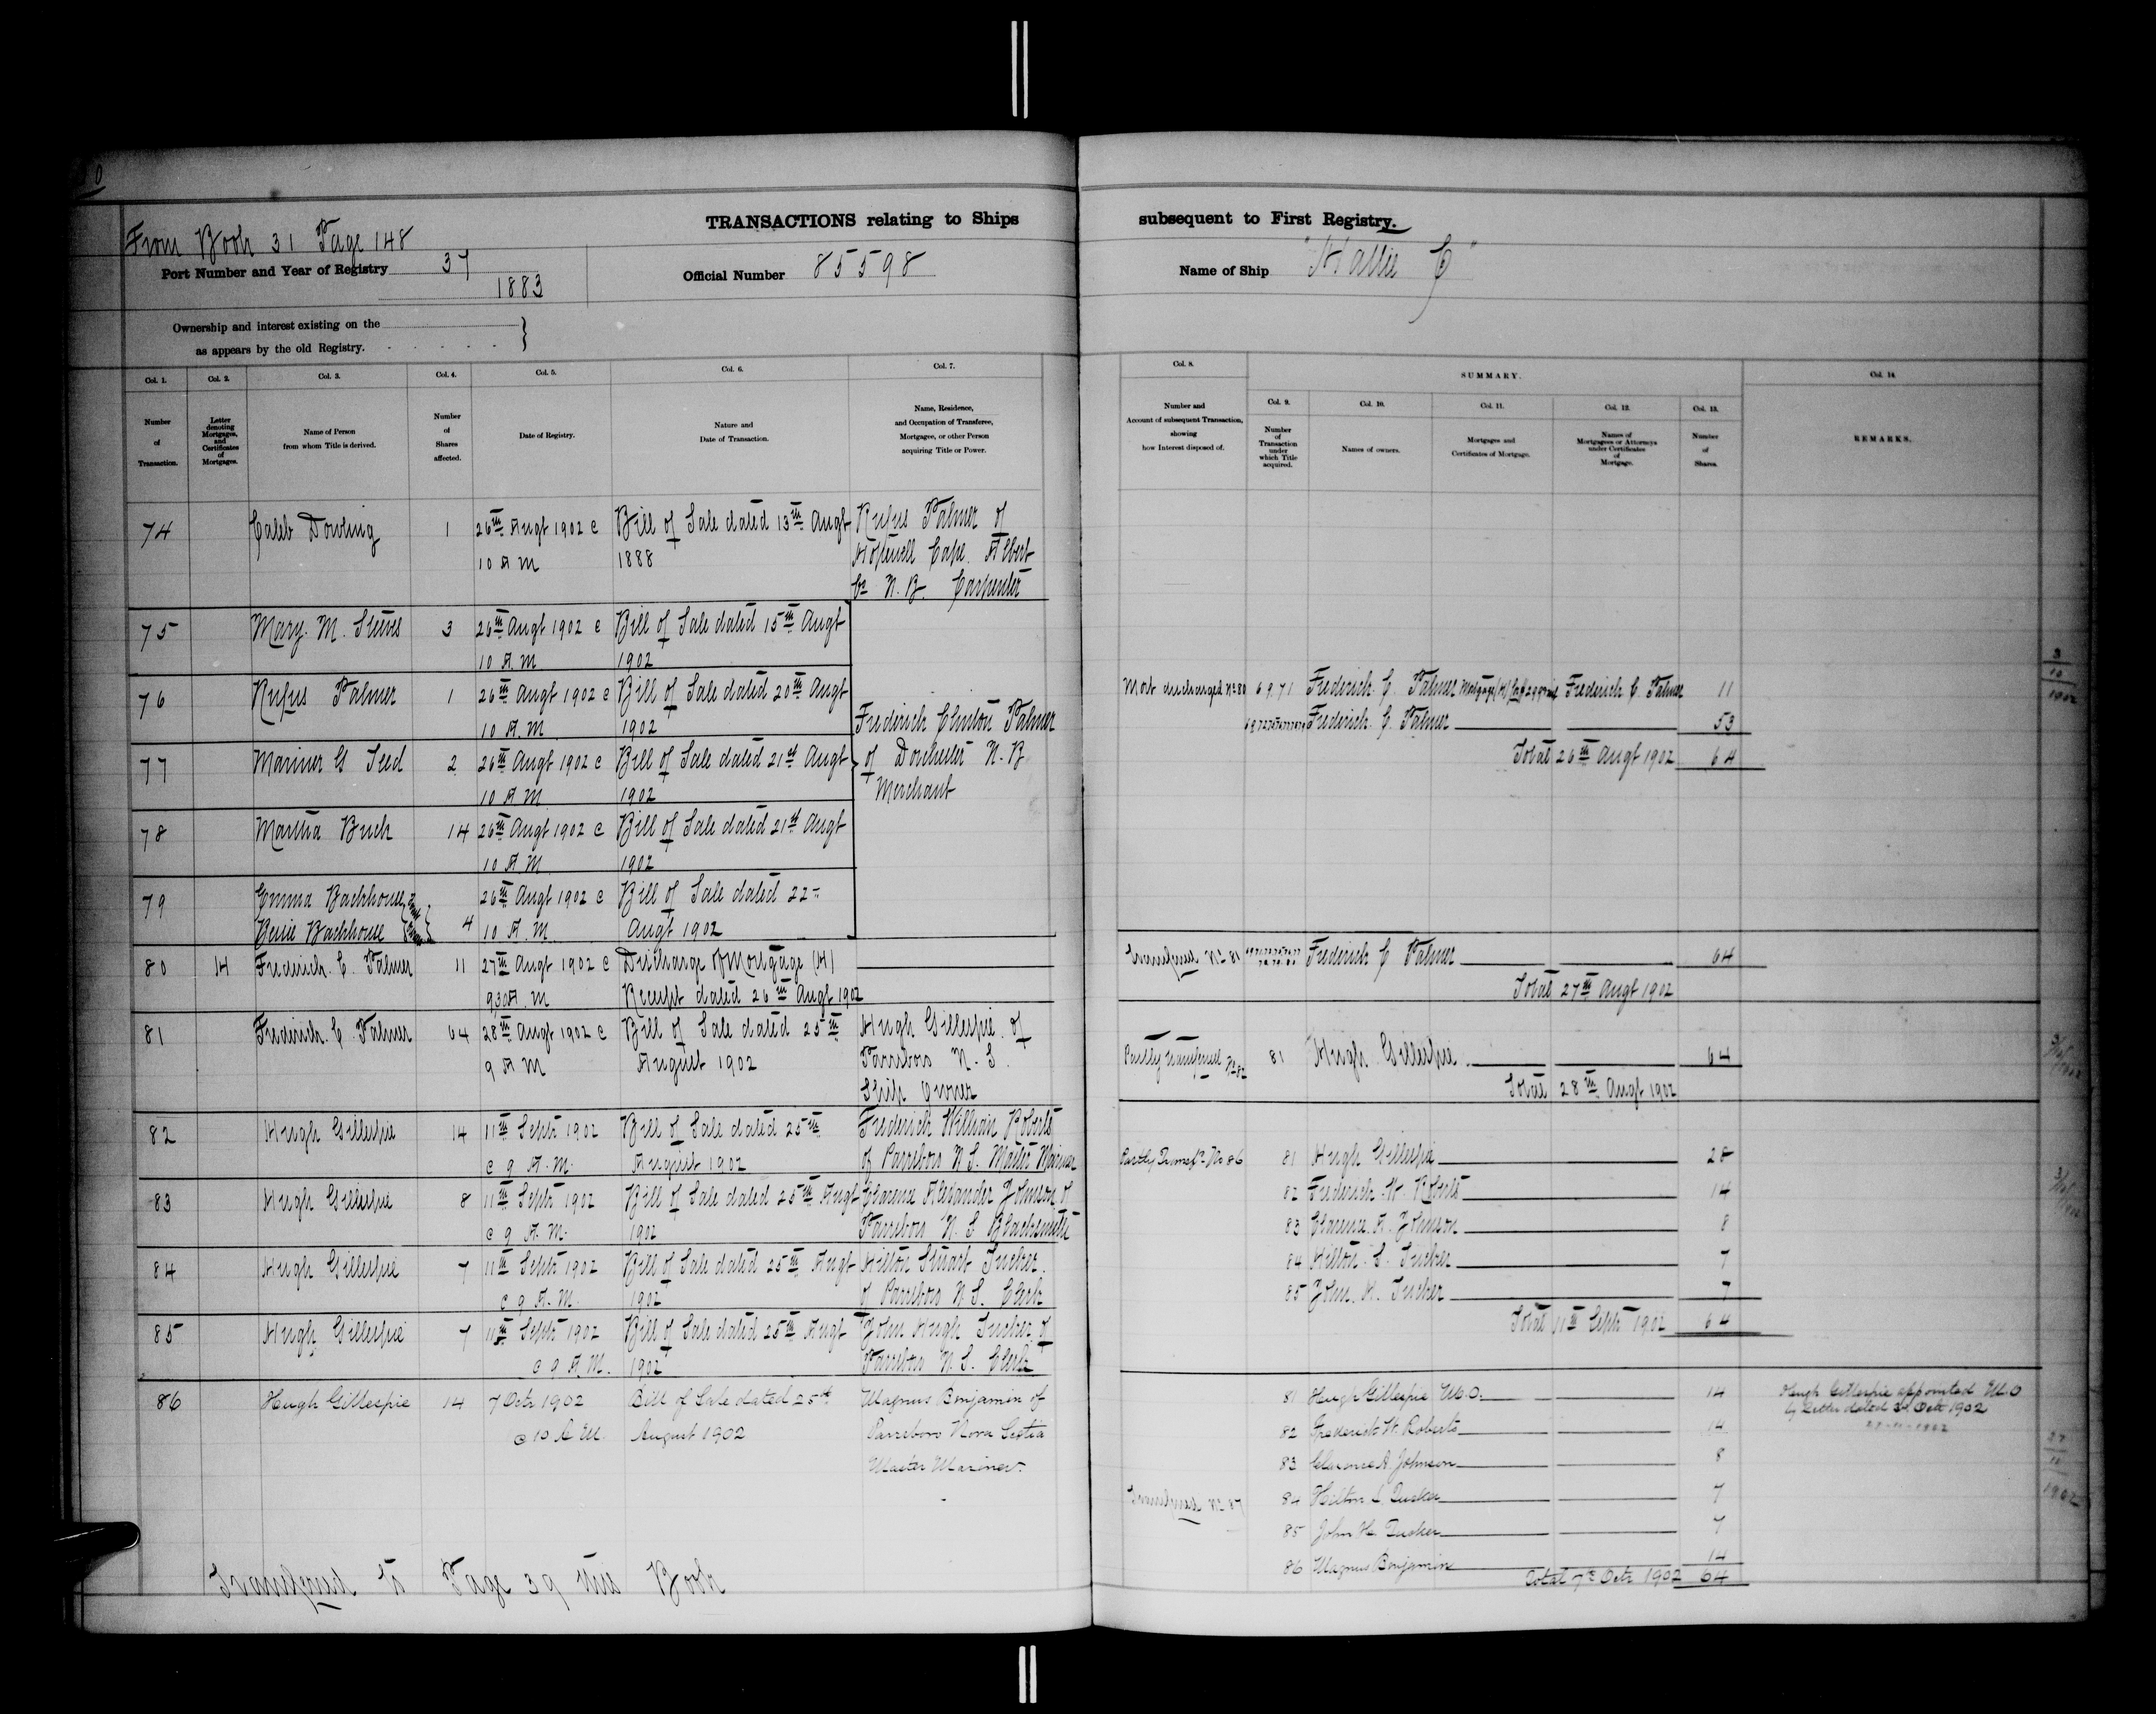 TRANSACTIONS relating to Ships subsequent to First Registry.
From Book 31 Page 148
Port Number and Year of Registry 37
1883
Official Number 85598
Name of Ship "Hattie C"
Ownership and interest existing on the
as appears by the old Registry.
Col. 1. Col. 2. Col. 3. Col. 4. Col. 5. Col. 6. Col. 7.
Number of Transaction.
Letter denoting Mortgages, and Certificates of Mortgages.
Name of Person from whom Title is derived.
Number of Shares affected.
Date of Registry.
Nature and Date of Transaction.
Name, Residence, and Occupation of Transferee, Mortgagee, or other Person acquiring Title or Power.
74 Caleb Dowling 1 26th Augt 1902 @ Bill of Sale dated 13th Augt Rufus Palmer of
10 A M 1888 Hopewell Cape Albert
Co N.B. Carpenter
75 Mary M. Steeves 3 26th Augt 1902 @ Bill of Sale dated 15th Augt
10 A.M 1902
76 Rufus Palmer 1 26th Augt 1902 @ Bill of Sale dated 20th Augt
10 A.M 1902 Frederick Clinton Palmer
77 Mariner G Teed 2 26th Augt 1902 @ Bill of Sale dated 21st Augt of Dorchester N.B
10 A M 1902 Merchant
78 Martha Buck 14 26th Augt 1902 @ Bill of Sale dated 21st Augt
10 A.M 1902
79 Emma Backhouse 26th Augt 1902 @ Bill of Sale dated 22
Backhouse 4 10 A.M Augt 1902
80 H Frederick C. Palmer 11 27th Augt 1902 @ Discharge of Mortgage (H)
9.30 A.M Receipt dated 26th Augt 1902
81 Frederick C. Palmer 64 28th Augt 1902 @ Bill of Sale dated 25th Hugh Gillespie of
9 A M August 1902 Parrsboro N.S.
Ship Owner
82 Hugh Gillespie 14 11th Septr 1902 Bill of Sale dated 25th Frederick William Roberts
@ 9 A.M. August 1902 of Parrsboro N.S. Master Mariner
83 Hugh Gillespie 8 11th Septr 1902 Bill of Sale dated 25th Augt Clarence Alexander Johnson of
@ 9 A.M. 1902 Parrsboro N.S Blacksmith
84 Hugh Gillespie 7 11th Septr 1902 Bill of Sale dated 25th Augt Hilton Stuart Tucker
@ 9 A.M. 1902 of Parrsboro N.S. Clerk
85 Hugh Gillespie 7 11th Septr 1902 Bill of Sale dated 25th Augt John Hugh Tucker of
@ 9 A.M. 1902 Parrsboro N.S. Clerk
86 Hugh Gillespie 14 7 Octr 1902 Bill of Sale dated 25th Magnus Benjamin of
@ 10 A M. August 1902 Parrsboro Nova Scotia
Master Mariner.
Transferred to Page 39 this Book
Col. 8. SUMMARY. Col. 14.
Col. 9. Col. 10. Col. 11. Col. 12. Col. 13.
Number and Account of subsequent Transaction, showing how Interest disposed of.
Number of Transaction under which Title acquired.
Names of owners.
Mortgages and Certificates of Mortgage.
Names of Mortgagees or Attorneys under Certificates of Mortgage.
Number of Shares.
REMARKS.
Mort discharged No 80 69.71 Frederick C. Palmer Mortgage (H) Frederick C. Palmer 11
Frederick C. Palmer 53
Total 26th Augt 1902 64
Transferred No 81 Frederick C Palmer 64
Total 27th Augt 1902
Partly transferred No 82 81 Hugh Gillespie 64
Total 28th Augt 1902
Partly Transfd No 86 81 Hugh Gillespie 28
82 Frederick W. Roberts 14
83 Clarence A. Johnson 8
84 Hilton S. Tucker 7
85 John H. Tucker 7
Total 11th Septr 1902 64
81 Hugh Gillespie M.O. 14 Hugh Gillespie appointed M.O
by Letter dated Octr 1902
82 Frederick W. Roberts 14
83 Clarence A. Johnson 8
Transferred No 87 84 Hilton S. Tucker 7
85 John H. Tucker 7
86 Magnus Benjamin 14
Total 7th Octr 1902 64
3
10
1902
27
11
1902